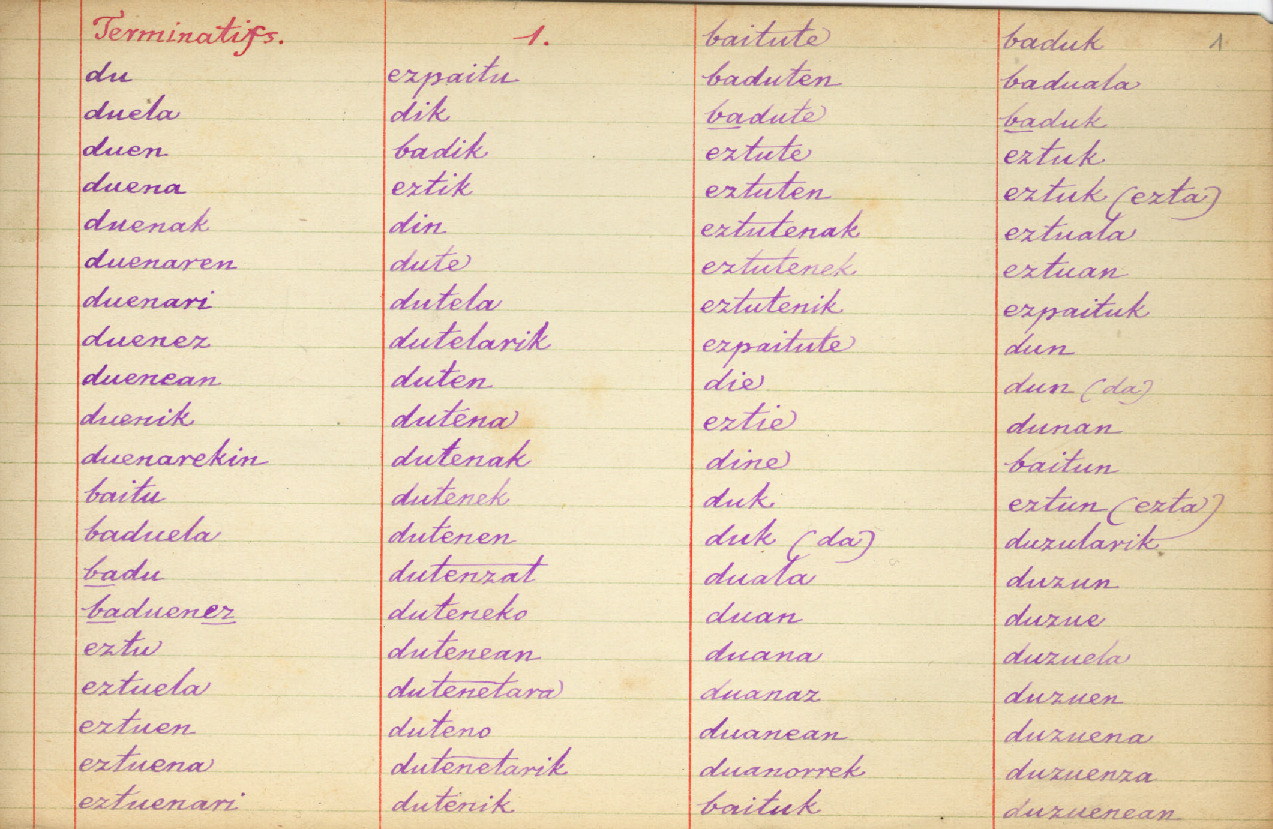 Terminatifs.
du
duela
duen
duena
duenak
duenaren
duenari
duenez
duenean
duenik
duenarekin
baitu
baduela
badu
baduenez
eztu
eztuela
eztuen
eztuena
eztuenari
1.
ezpaitu
dik
badik
eztik
din
dute
dutela
dutelarik
duten
dutena
dutenak
dutenek
dutenen
dutenzat
duteneko
dutenean
dutenetara
duteno
dutenetarik
dutenik
baitute
baduten
badute
eztute
eztuten
eztutenak
eztutenek
eztutenik
ezpaitute
die
eztie
dine
duk
duk (da)
duala
duan
duana
duanaz
duanean
duanorrek
baituk
1
baduk
baduala
baduk
eztuk
eztuk (ezta)
eztuala
eztuan
ezpaituk
dun
dun (da)
dunan
baitun
eztun (ezta)
duzularik
duzun
duzue
duzuela
duzuen
duzuena
duzuenza
duzuenean